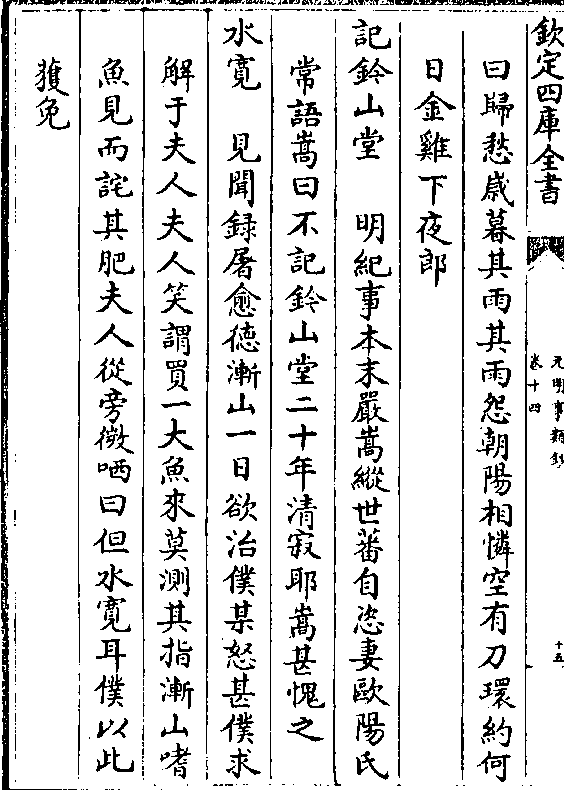 欽定四庫全書
元明事類鈔
卷十四
十五
曰歸愁歲暮其雨其雨怨朝陽相憐空有刀環約何
日金雞下夜郎
記鈐山堂　明紀事本末嚴嵩縱世蕃自恣妻歐陽氏
常語嵩曰不記鈐山堂二十年清寂耶嵩甚愧之
水寛　見聞録屠愈徳漸山一日欲治僕某怒甚僕求
解于夫人夫人笑謂買一大魚來莫測其指漸山嗜
魚見而詫其肥夫人從旁微哂曰但水寛耳僕以此
獲免